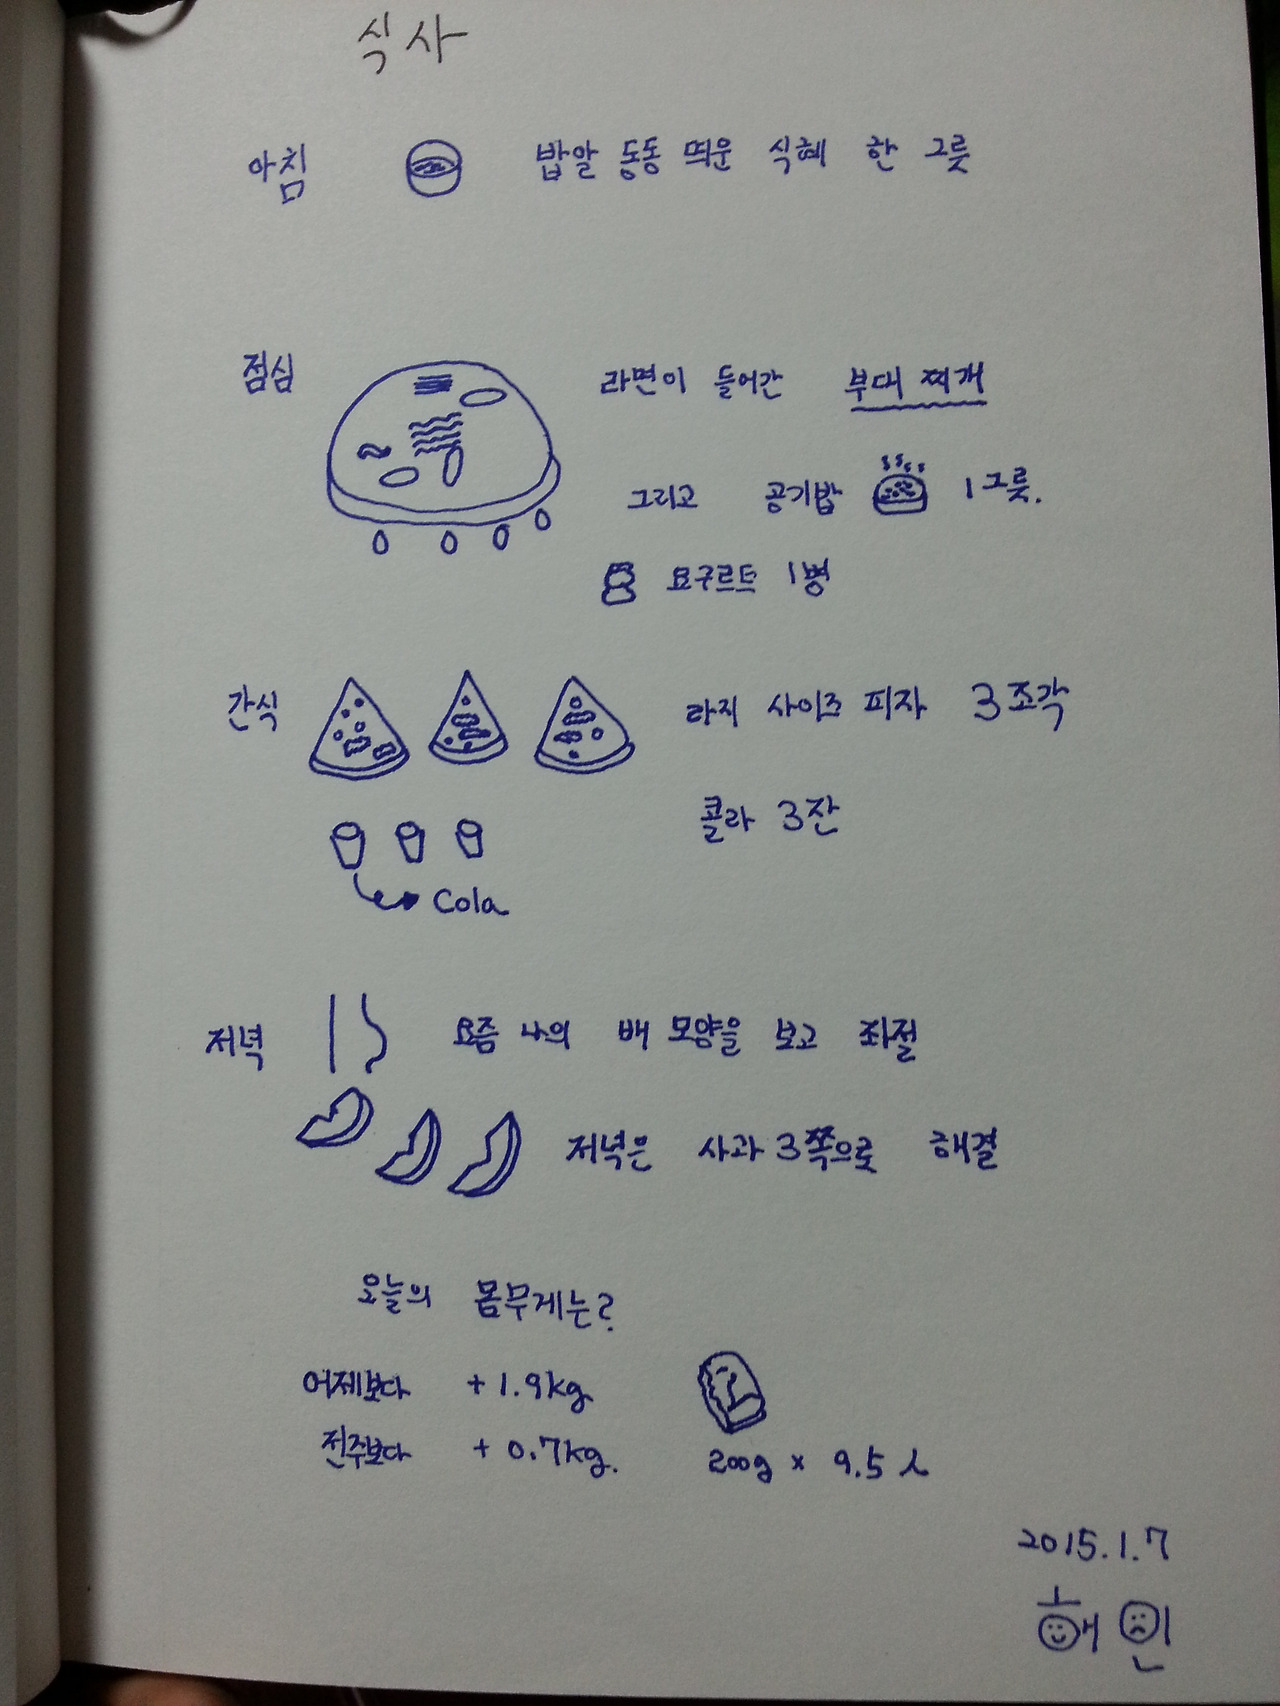 식사
아침 밥알 동동 띄운 식혜 한 그릇
점심 라면이 들어간 부대 찌개
그리고 공기밥 1그릇.
요구르트 1병
간식 라지 사이즈 피자 3조각
콜라 3잔
Cola
저녁 요즘 나의 배 모양을 보고 좌절
저녁은 사과 3쪽으로 해결
오늘의 몸무게는?
어제보다 +1.9kg
전주보다 +0.7kg.
200g x 9.5
2015.1.7
해인